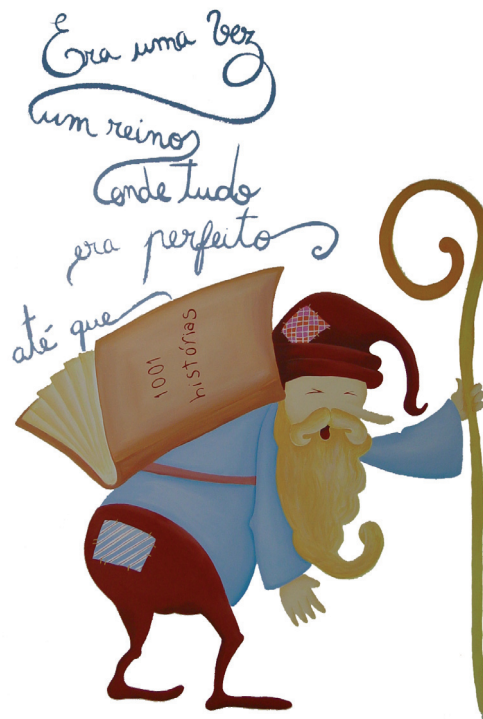 Era uma vez
um reino
onde tudo
era perfeito
até que
1001
histórias